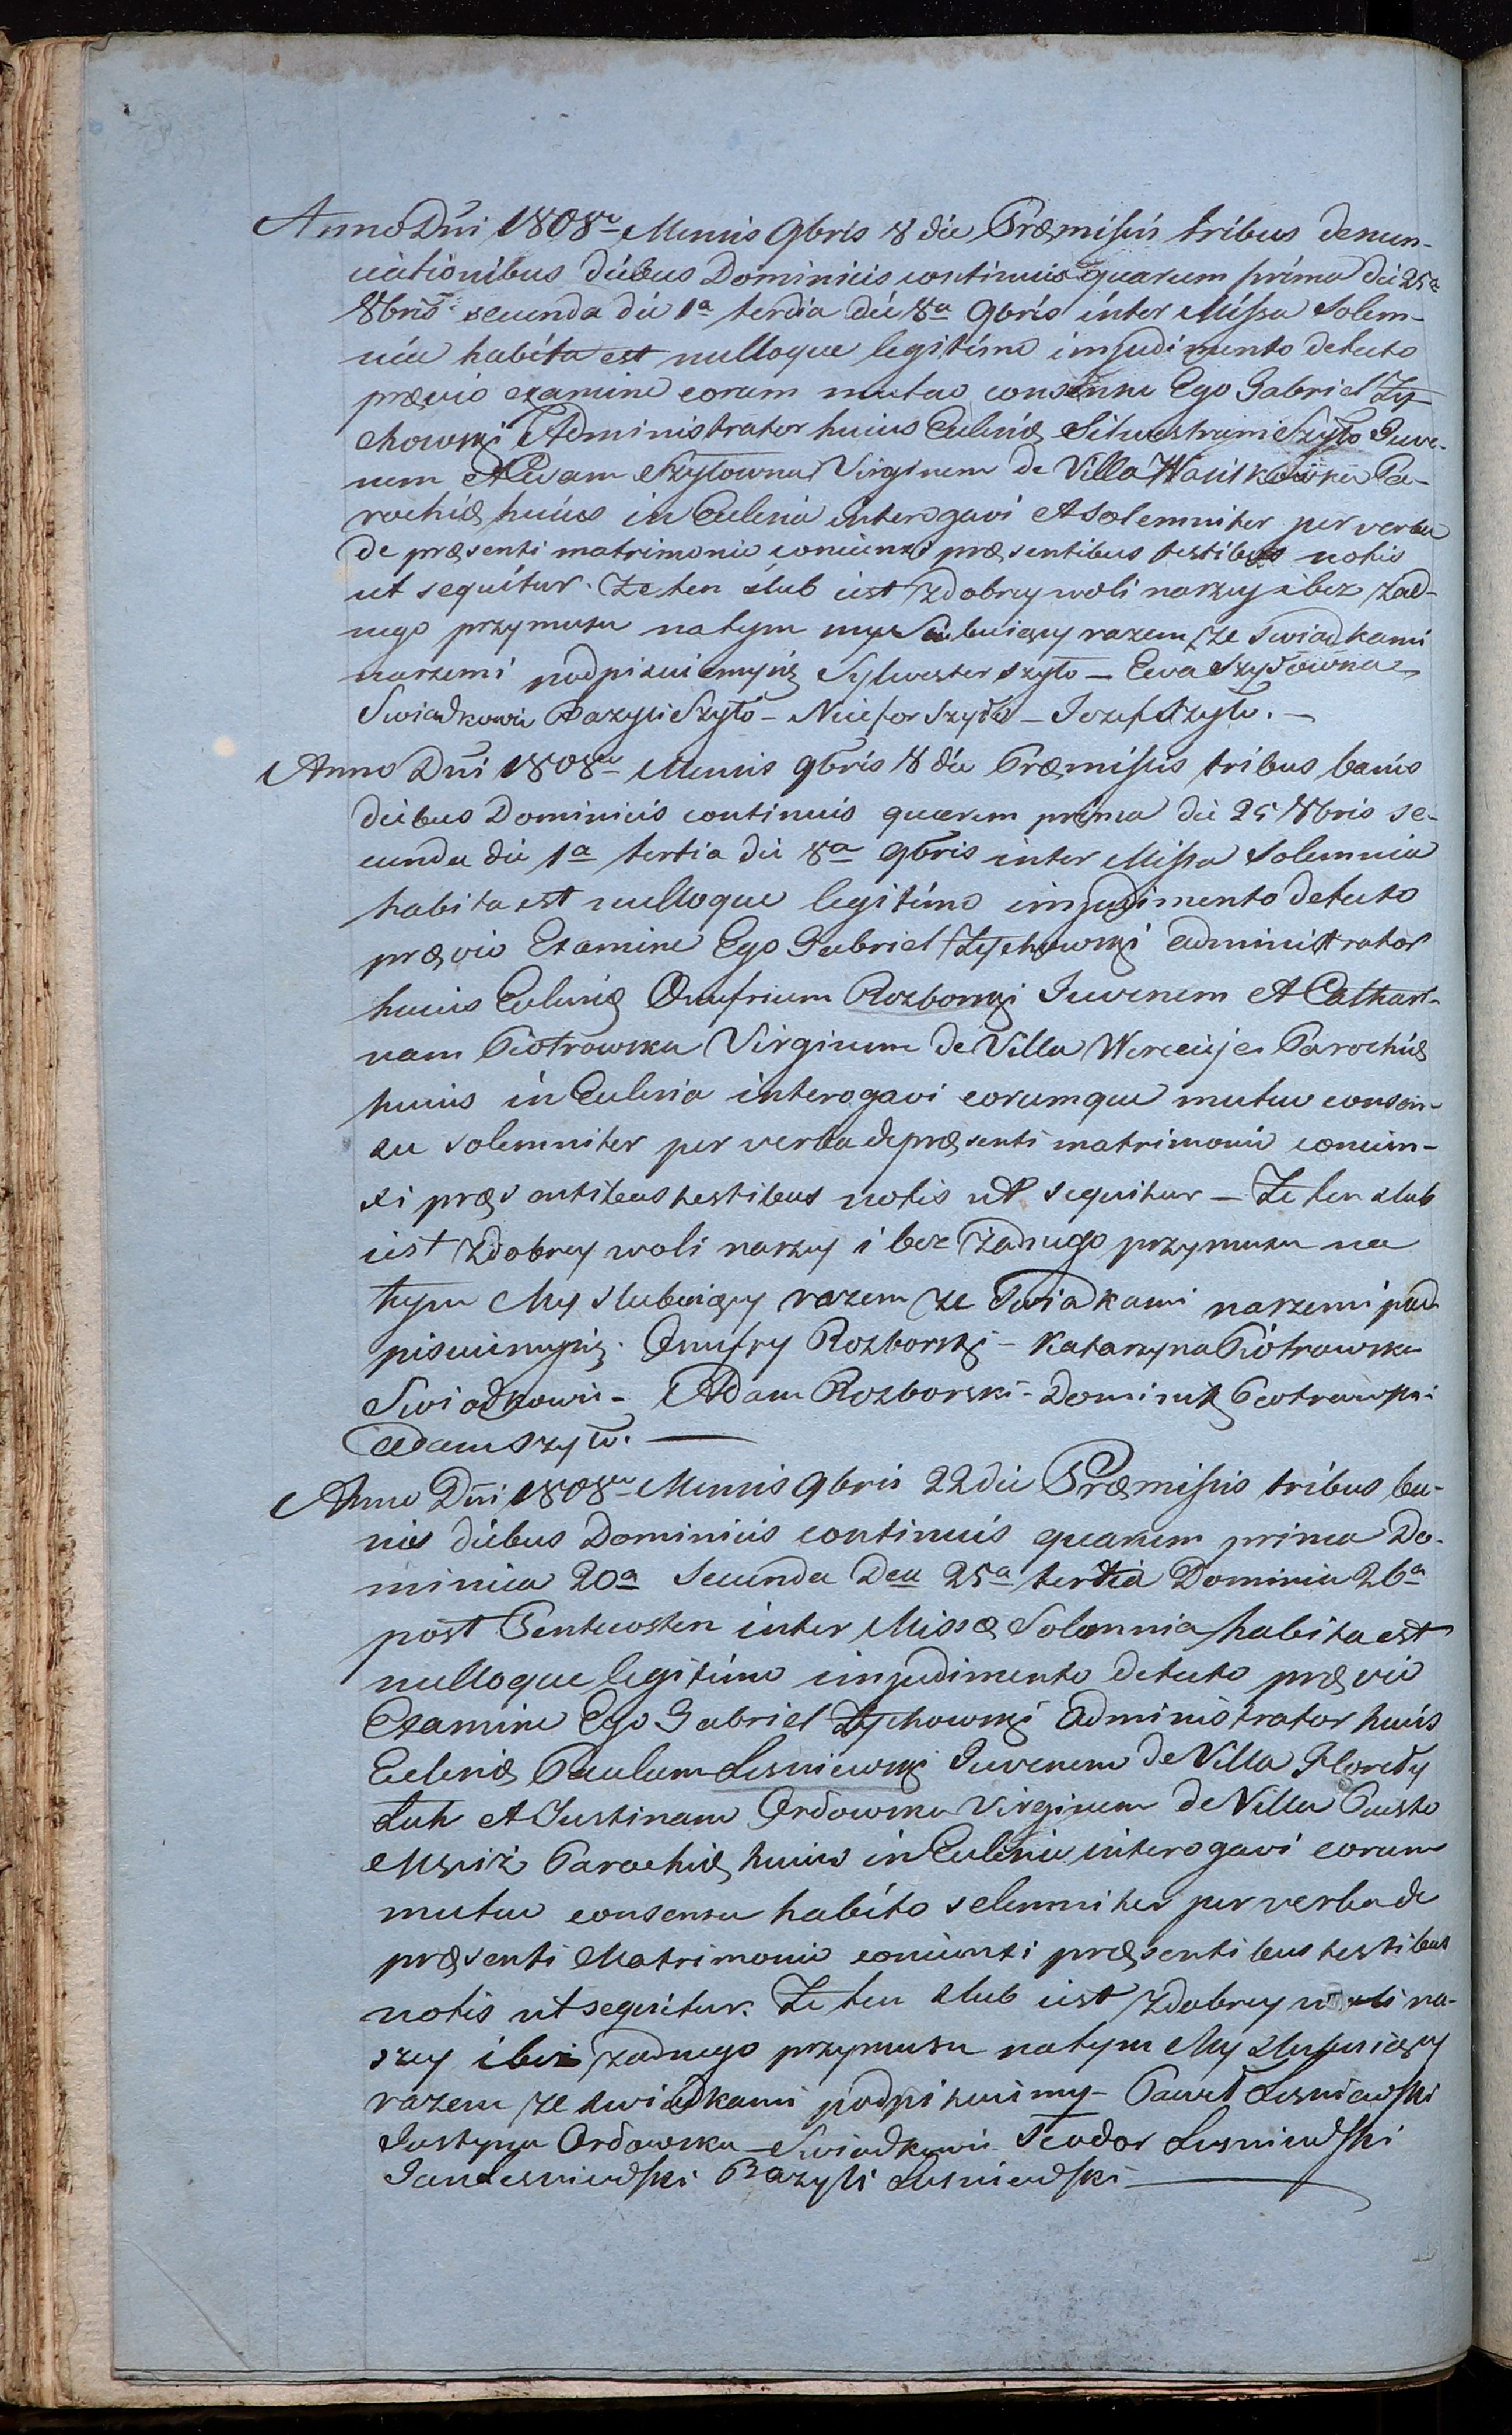 Anno Dni 1808vo Mensis 9bris 8 die Præmissis tribus denun-
ciationibus diebus Dominicis continuis quarum prima die 25a
8bris secunda die 1a tertia die 8a 9bris inter Missa Solem-
nia habita est nulloque legitimo impedimento detecto
prævio examine eorum mutuo consensu Ego Gabriel Zy-
chowski Administrator huius Ecclesiæ Silvestrum Szyło Juve-
nem et Evam Szyłowna Virginem de Villa Parochiæ
huius in Ecclesia interogavi et solemniter per verba
de præsenti matrimonio coniunxi præsentibus testibus notis
ut sequitur. Ze ten slub iest z dobrey woli naszey i bez zad-
nego przymusu na tym my slubuiący razem ze Swiadkami
naszemi podpisuiemy się Sylwester Szyło – Ewa Szyłowna
Swiadkowie Bazyli Szyło – Nicefor Szyło – Jozef Szyło. –
Anno Dni 1808vo Mensis 9bris 8 die Præmissis tribus banis
diebus Dominicis continuis quarum prima die 25 8bris se-
cunda die 1a tertia die 8a 9bris inter Missa Solemnia
habita est nulloque legitimo impedimento detecto
prævio Examine Ego Gabriel Zychowski administrator
huius Ecclesiæ Onufrium Rozborski Juvenem et Cathari-
nam Piotrowska Virginem de Villa Parochiæ
huius in Ecclesia interogavi eorumque mutuo consen-
su solemniter per verba de præsenti matrimonio coniun-
xi præsentibus testibus notis ut sequitur – Ze ten slub
iest z dobrey woli naszey i bez żadnego przymusu na
tym My slubuiący razem ze Swiadkami naszemi pod
pisuiemy się. Onufry Rozborski – Katarzyna Piotrowska
Swiadkowie – Adam Rozborski – Dominik Piotrowski
Adam Szyło. —
Anno Dni 1808vo Mensis 9bris 22 die Præmissis tribus ba-
nis diebus Dominicis continuis quarum prima Do-
minica 20a Secunda Dca 25a tertia Dominica 26a
post Pentecosten inter Missæ Solemnia habita est
nulloque legitimo impedimento detecto prævio
Examine Ego Gabriel Zychowski administrator huis
Ecclesiæ Paulum Lesniewski Juvenem de Villa
Łuh et Justinam Ordowska Virginem de Villa Pusto
Mściż Parochiæ huius in Ecclesia interogavi eorum
mutuo consensu habito solemniter per verba de
præsenti Matrimonio coniunxi præsentibus testibus
notis ut sequitur. Ze ten slub iest z dobrey woli na-
szey i bez zadnego przymusu na tym My slubuiący
razem ze swiadkami podpisuiemy – Paweł Lesniewski
Justyna Ordowska – Swiadkowie Teodor Lesniewski
Jan Lesniewski Bazyli Lesniewski —